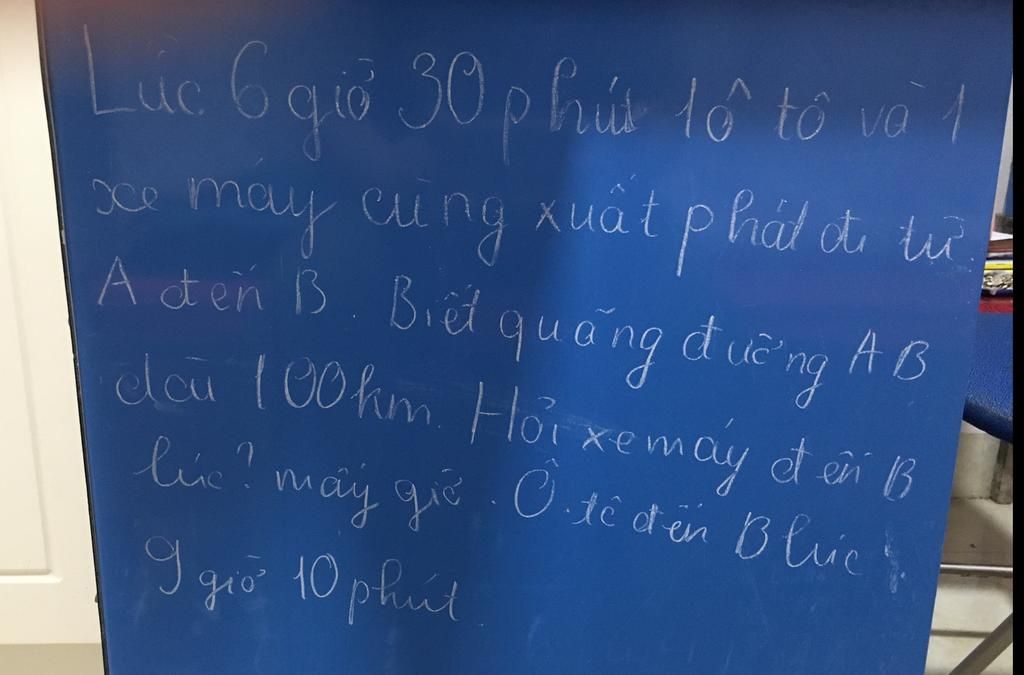 Lúc 6 giờ 30 phút 1 ô tô và 1
xe máy cùng xuất phát đi từ
A đến B. Biết quãng đường AB
dài 100km. Hỏi xe máy đến B
lúc? mấy giờ. Ô tô đến B lúc
9 giờ 10 phút